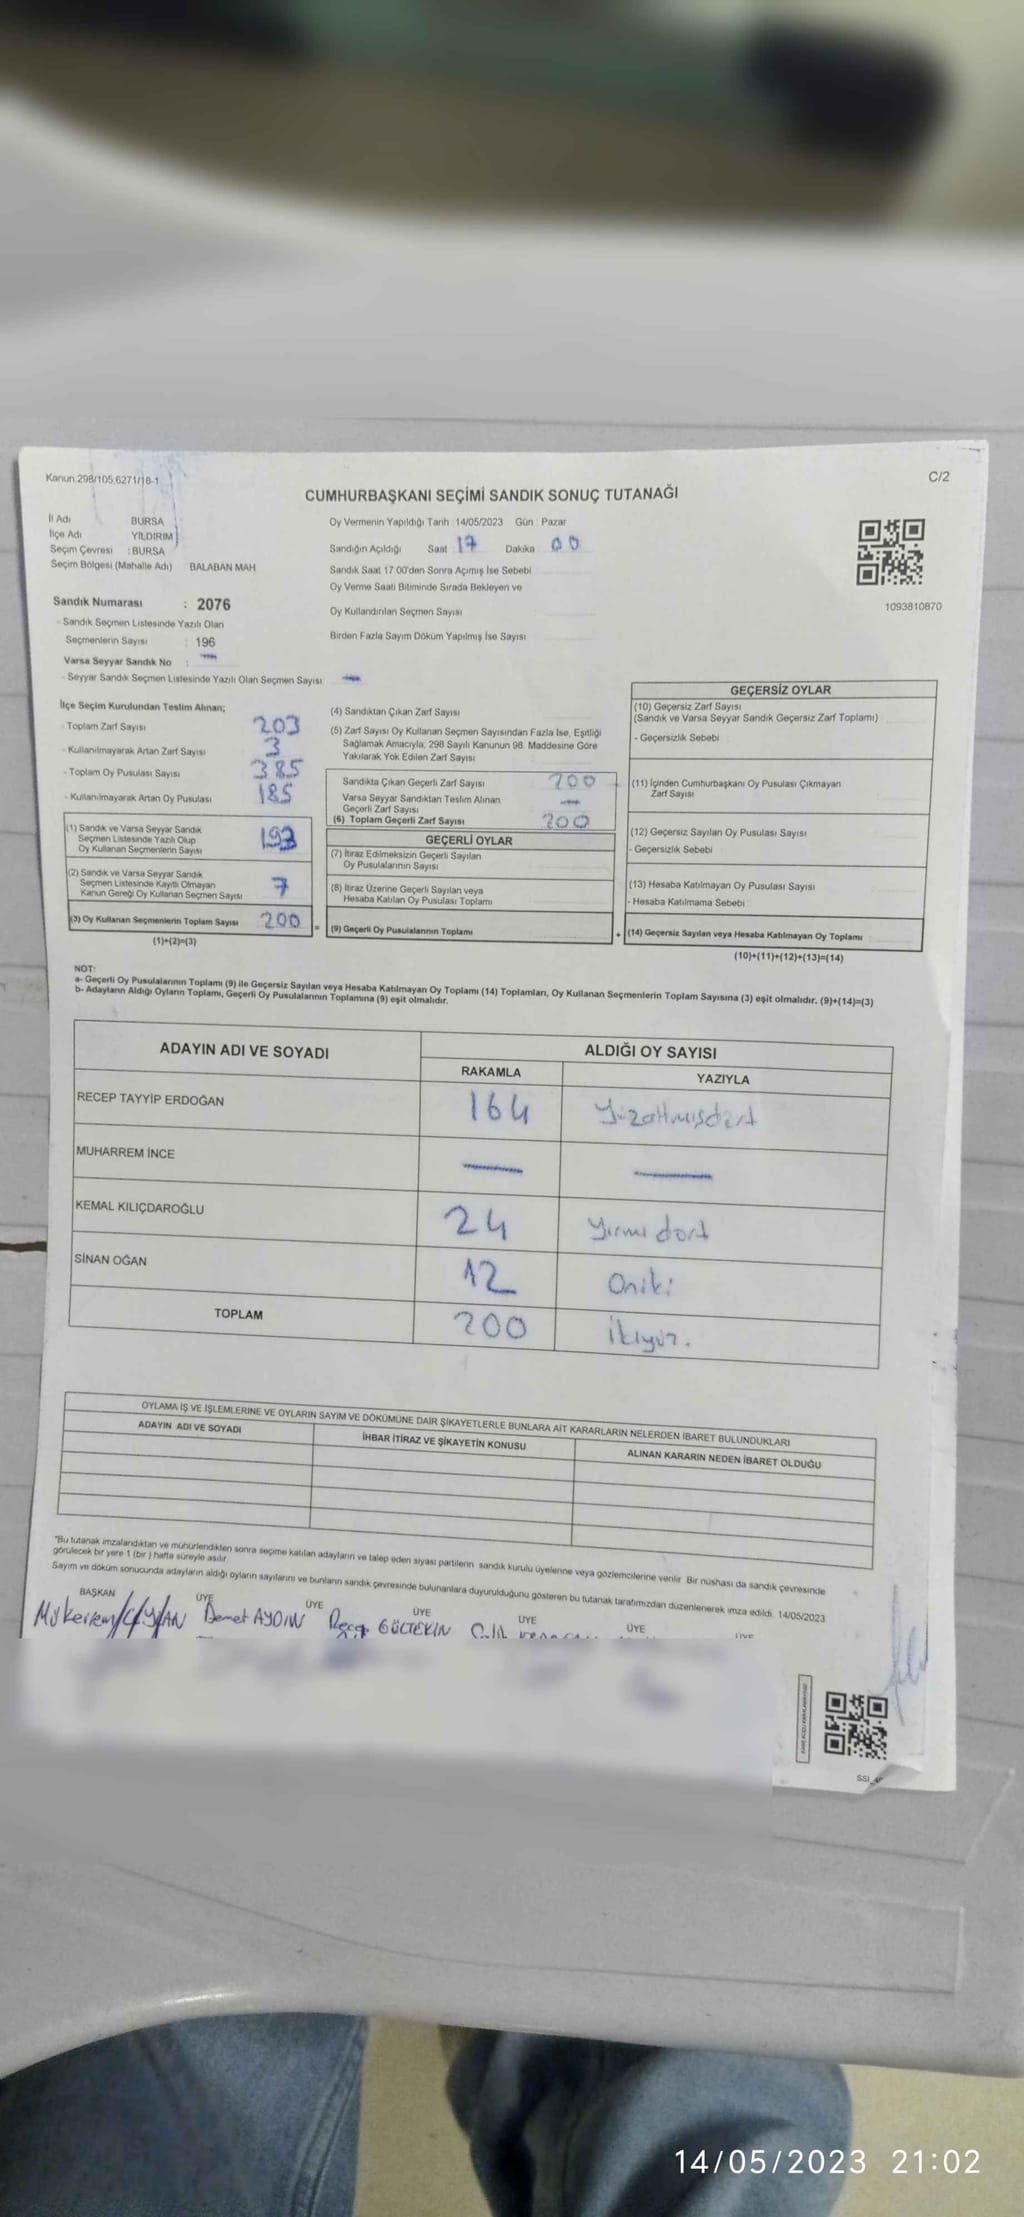 Kanun:298/105;6271/18-1
C/2
CUMHURBAŞKANI SEÇİMİ SANDIK SONUÇ TUTANAĞI
İl Adı BURSA
İlçe Adı YILDIRIM
Seçim Çevresi : BURSA
Seçim Bölgesi (Mahalle Adı) BALABAN MAH
Sandık Numarası : 2076
- Sandık Seçmen Listesinde Yazılı Olan
Seçmenlerin Sayısı : 196
Varsa Seyyar Sandık No : —
- Seyyar Sandık Seçmen Listesinde Yazılı Olan Seçmen Sayısı —
Oy Vermenin Yapıldığı Tarih 14/05/2023 Gün Pazar
Sandığın Açıldığı Saat 17 Dakika 00
Sandık Saat 17.00'den Sonra Açımış İse Sebebi
Oy Verme Saati Bitiminde Sırada Bekleyen ve
Oy Kullandırılan Seçmen Sayısı
Birden Fazla Sayım Döküm Yapılmış İse Sayısı
1093810870
İlçe Seçim Kurulundan Teslim Alınan;
- Toplam Zarf Sayısı 203
- Kullanılmayarak Artan Zarf Sayısı 3
- Toplam Oy Pusulası Sayısı 385
- Kullanılmayarak Artan Oy Pusulası 185
(1) Sandık ve Varsa Seyyar Sandık
Seçmen Listesinde Yazılı Olup
Oy Kullanan Seçmenlerin Sayısı 193
(2) Sandık ve Varsa Seyyar Sandık
Seçmen Listesinde Kayıtlı Olmayan
Kanun Gereği Oy Kullanan Seçmen Sayısı 7
(3) Oy Kullanan Seçmenlerin Toplam Sayısı 200
(1)+(2)=(3)
(4) Sandıktan Çıkan Zarf Sayısı
(5) Zarf Sayısı Oy Kullanan Seçmen Sayısından Fazla İse, Eşitliği
Sağlamak Amacıyla, 298 Sayılı Kanunun 98. Maddesine Göre
Yakılarak Yok Edilen Zarf Sayısı
Sandıkta Çıkan Geçerli Zarf Sayısı 200
Varsa Seyyar Sandıktan Teslim Alınan
Geçerli Zarf Sayısı —
(6) Toplam Geçerli Zarf Sayısı 200
GEÇERLİ OYLAR
(7) İtiraz Edilmeksizin Geçerli Sayılan
Oy Pusulalarının Sayısı
(8) İtiraz Üzerine Geçerli Sayılan veya
Hesaba Katılan Oy Pusulası Toplamı
= (9) Geçerli Oy Pusulalarının Toplamı
GEÇERSİZ OYLAR
(10) Geçersiz Zarf Sayısı
(Sandık ve Varsa Seyyar Sandık Geçersiz Zarf Toplamı)
- Geçersizlik Sebebi
(11) İçinden Cumhurbaşkanı Oy Pusulası Çıkmayan
Zarf Sayısı
(12) Geçersiz Sayılan Oy Pusulası Sayısı
- Geçersizlik Sebebi
(13) Hesaba Katılmayan Oy Pusulası Sayısı
- Hesaba Katılmama Sebebi
+ (14) Geçersiz Sayılan veya Hesaba Katılmayan Oy Toplamı
(10)+(11)+(12)+(13)=(14)
NOT:
a- Geçerli Oy Pusulalarının Toplamı (9) ile Geçersiz Sayılan veya Hesaba Katılmayan Oy Toplamı (14) Toplamları, Oy Kullanan Seçmenlerin Toplam Sayısına (3) eşit olmalıdır. (9)+(14)=(3)
b- Adayların Aldığı Oyların Toplamı, Geçerli Oy Pusulalarının Toplamına (9) eşit olmalıdır.
ADAYIN ADI VE SOYADI ALDIĞI OY SAYISI
RAKAMLA YAZIYLA
RECEP TAYYİP ERDOĞAN 164 Yüzaltmışdört
MUHARREM İNCE — —
KEMAL KILIÇDAROĞLU 24 Yirmi dört
SİNAN OĞAN 12 Oniki
TOPLAM 200 İkiyüz.
OYLAMA İŞ VE İŞLEMLERİNE VE OYLARIN SAYIM VE DÖKÜMÜNE DAİR ŞİKAYETLERLE BUNLARA AİT KARARLARIN NELERDEN İBARET BULUNDUKLARI
ADAYIN ADI VE SOYADI İHBAR İTİRAZ VE ŞİKAYETİN KONUSU ALINAN KARARIN NEDEN İBARET OLDUĞU
*Bu tutanak imzalandıktan ve mühürlendikten sonra seçime katılan adayların ve talep eden siyasi partilerin sandık kurulu üyelerine veya gözlemcilerine verilir. Bir nüshası da sandık çevresinde
görülecek bir yere 1 (bir) hafta süreyle asılır.
Sayım ve döküm sonucunda adayların aldığı oyların sayılarını ve bunların sandık çevresinde bulunanlara duyurulduğunu gösteren bu tutanak tarafımızdan düzenlenerek imza edildi. 14/05/2023
BAŞKAN ÜYE ÜYE ÜYE ÜYE ÜYE ÜYE
Demet AYDIN
GÜLTEKİN
14/05/2023 21:02